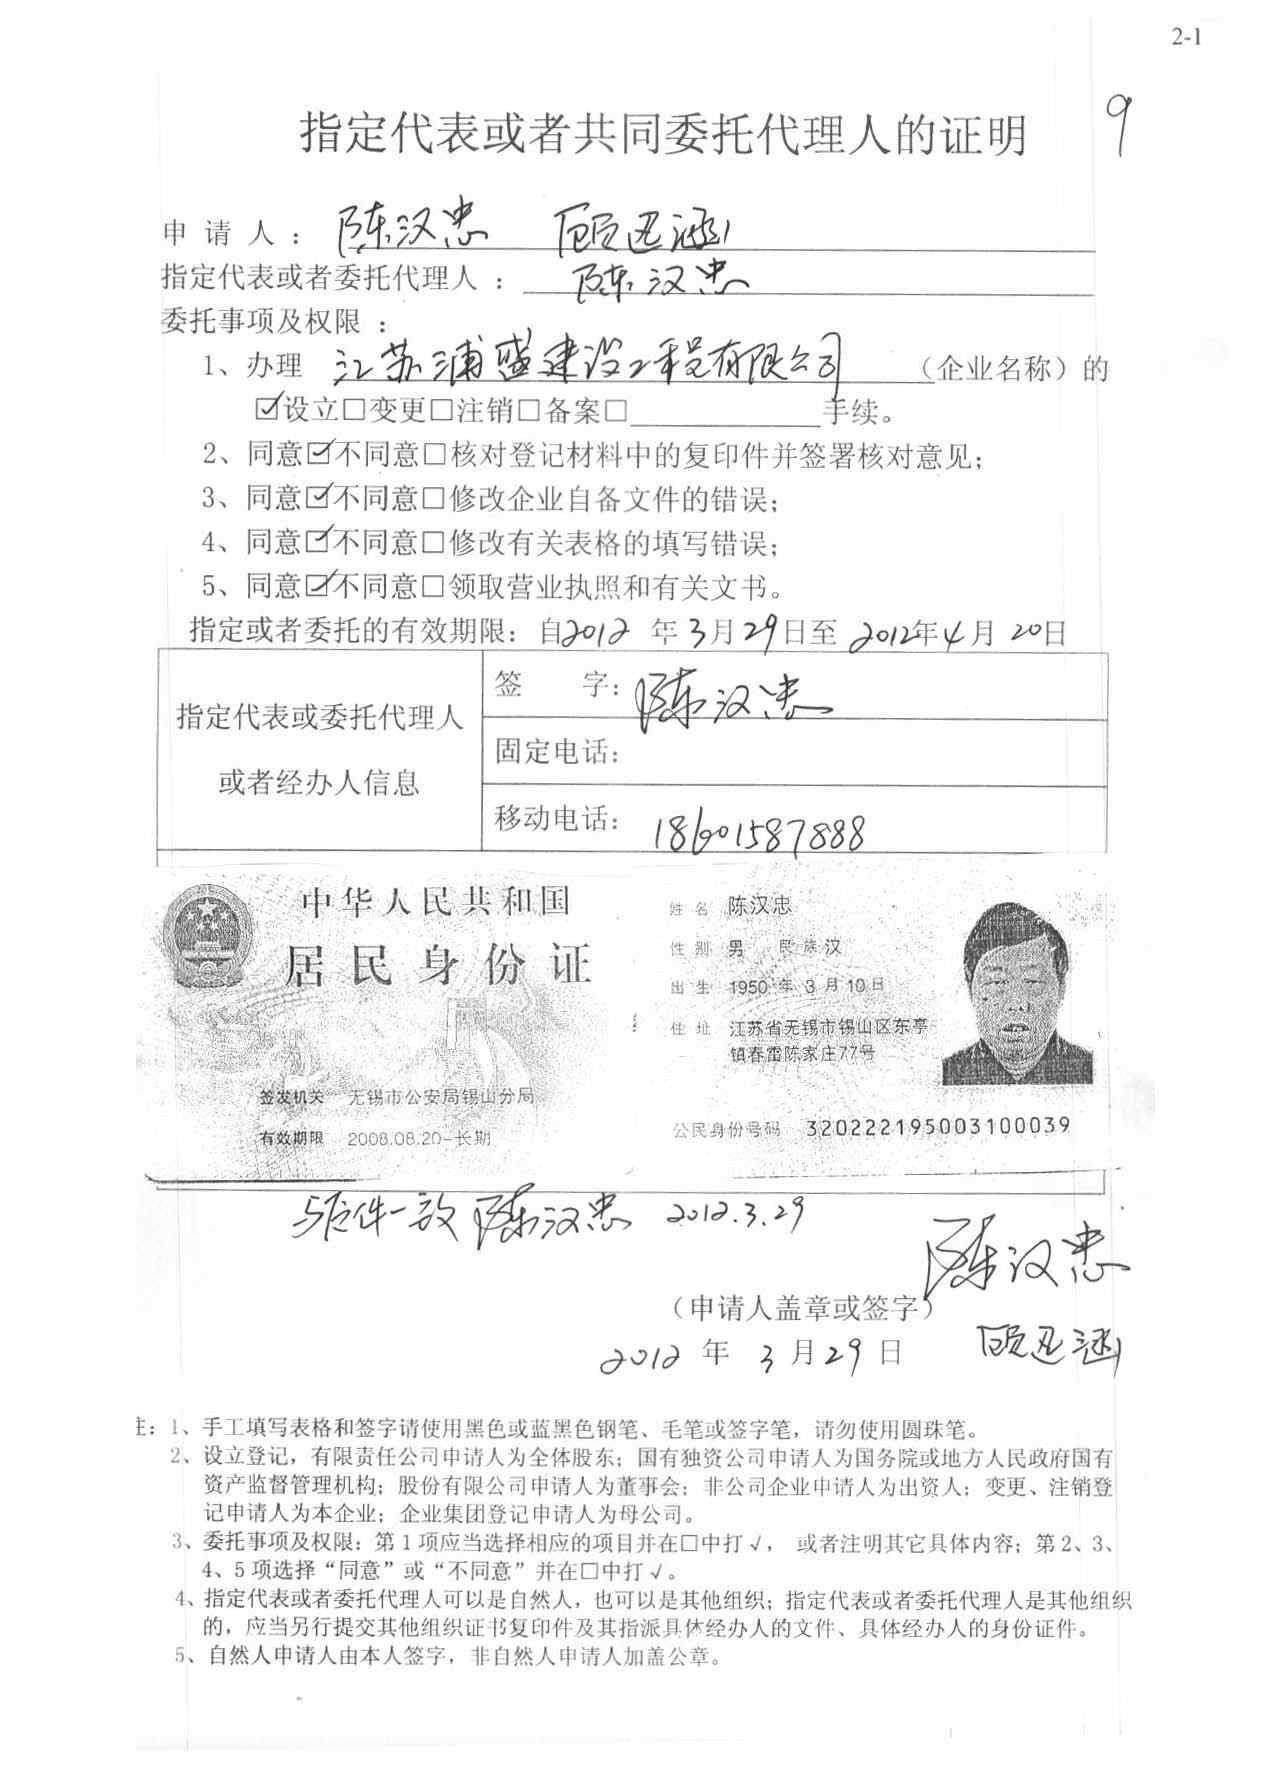 2-1
9
指定代表或者共同委托代理人的证明
申请人：陈汉忠 顾迅涵
指定代表或者委托代理人：陈汉忠
委托事项及权限：
1、办理 江苏浦盛建设工程有限公司（企业名称）的
☑设立□变更□注销□备案□手续。
2、同意☑不同意□核对登记材料中的复印件并签署核对意见；
3、同意☑不同意□修改企业自备文件的错误；
4、同意☑不同意□修改有关表格的填写错误；
5、同意☑不同意□领取营业执照和有关文书。
指定或者委托的有效期限：自2012年3月29日至2012年4月20日
指定代表或委托代理人
或者经办人信息
签 字：陈汉忠
固定电话：
移动电话：18601587888
中华人民共和国
居民身份证
签发机关 无锡市公安局锡山分局
有效期限 2008.08.20-长期
姓名 陈汉忠
性别 男 民族 汉
出生 1950年3月10日
住址 江苏省无锡市锡山区东亭
镇春雷陈家庄77号
公民身份号码 320222195003100039
与原件一致 陈汉忠 2012.3.29
陈汉忠
（申请人盖章或签字）
2012年3月29日 顾迅涵
注：1、手工填写表格和签字请使用黑色或蓝黑色钢笔、毛笔或签字笔，请勿使用圆珠笔。
2、设立登记，有限责任公司申请人为全体股东；国有独资公司申请人为国务院或地方人民政府国有
资产监督管理机构；股份有限公司申请人为董事会；非公司企业申请人为出资人；变更、注销登
记申请人为本企业；企业集团登记申请人为母公司。
3、委托事项及权限：第1项应当选择相应的项目并在□中打√，或者注明其它具体内容；第2、3、
4、5项选择“同意”或“不同意”并在□中打√。
4、指定代表或者委托代理人可以是自然人，也可以是其他组织；指定代表或者委托代理人是其他组织
的，应当另行提交其他组织证书复印件及其指派具体经办人的文件、具体经办人的身份证件。
5、自然人申请人由本人签字，非自然人申请人加盖公章。